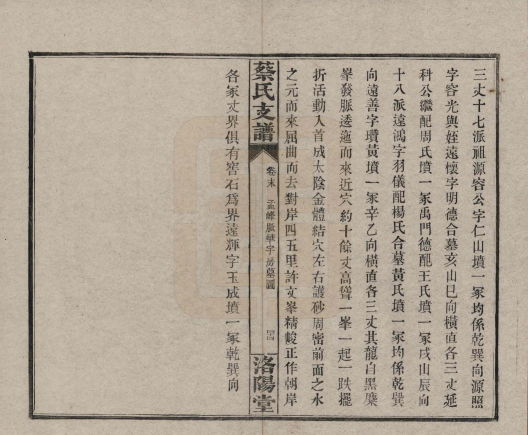 三丈十七派祖源容公字仁山墳一冢均係乾巽向源照
字容光與姪遠懷字明德合墓亥山巳向橫直各三丈延
科公繼配周氏墳一冢禹門德配王氏墳一冢戌山辰向
十八派遠鴻字羽儀配楊氏合墓黃氏墳一冢均係乾巽
向遠善字瓚黃墳一冢辛乙向橫直各三丈其龍自黑麋
峯發脈逶迤而來近穴約十餘丈高聳一峯一起一跌擺
折活動入首成太陰金體結穴左右護砂周密前面之水
之元而來屈曲而去對岸四五里許文峯精峻正作朝岸
蔡氏支譜
卷末
孟峰厫華字房墓圖
洛陽堂
各冢丈界俱有窖石爲界遠輝字玉成墳一冢乾巽向